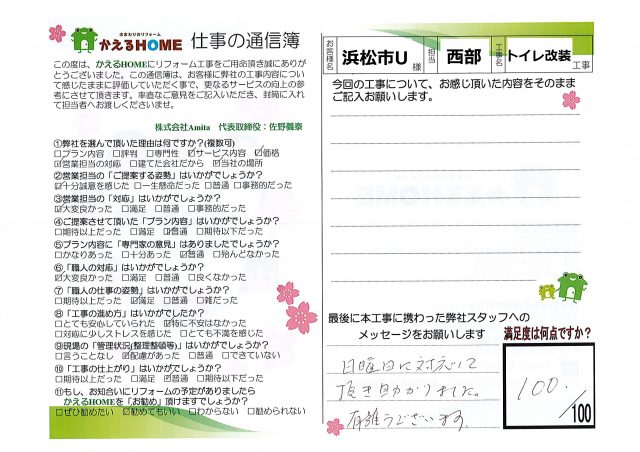 水まわりのリフォーム
かえるHOME 仕事の通信簿
この度は、かえるHOMEにリフォーム工事をご用命頂き誠にありが
とうございました。この通信簿は、お客様に弊社の工事内容につい
て感じたままに評価していただく事で、更なるサービスの向上の参
考にさせて頂きます。率直なご意見をご記入いただき、封筒に入れ
て担当者へお渡しくださいませ。
株式会社Amita 代表取締役：佐野義泰
①弊社を選んで頂いた理由は何ですか?(複数可)
□プラン内容 □評判 □専門性 ☑サービス内容 ☑価格
☑営業担当の対応 □建てた会社だから ☑当社の場所
②営業担当の「ご提案する姿勢」はいかがでしょうか?
☑十分誠意を感じた □一生懸命だった □普通 □事務的だった
③営業担当の「対応」はいかがでしょうか?
☑大変良かった □満足 □普通 □事務的だった
④ご提案させて頂いた「プラン内容」はいかがでしょうか?
□期待以上だった □満足 ☑普通 □期待以下だった
⑤プラン内容に「専門家の意見」はありましたでしょうか?
□かなりあった □十分あった ☑普通 □殆んどなかった
⑥「職人の対応」はいかがでしょうか?
☑大変良かった □満足 □普通 □良くなかった
⑦「職人の仕事の姿勢」はいかがでしょうか?
□期待以上だった ☑満足 □普通 □雑だった
⑧「工事の進め方」はいかがでしたか?
□とても安心していられた ☑特に不安はなかった
□対応に少しストレスを感じた □とても不満を感じた
⑨現場の「管理状況(整理整頓等)」はいかがでしょうか?
□言うことなし ☑配慮があった □普通 □できていない
⑩「工事の仕上がり」はいかがでしたか?
□期待以上だった □満足 ☑普通 □期待以下だった
⑪もし、お知合いにリフォームの予定がありましたら
かえるHOMEを「お勧め」頂けますでしょうか?
□ぜひ勧めたい ☑勧めてもいい □わからない □勧められない
お客様名 浜松市U様 担当 西部 工事名 トイレ改装工事
今回の工事について、お感じ頂いた内容をそのまま
ご記入お願いします。
最後に本工事に携わった弊社スタッフへの
メッセージをお願いします
満足度は何点ですか?
日曜日に対応して
頂き助かりました。
有難うございます。
100.
/100